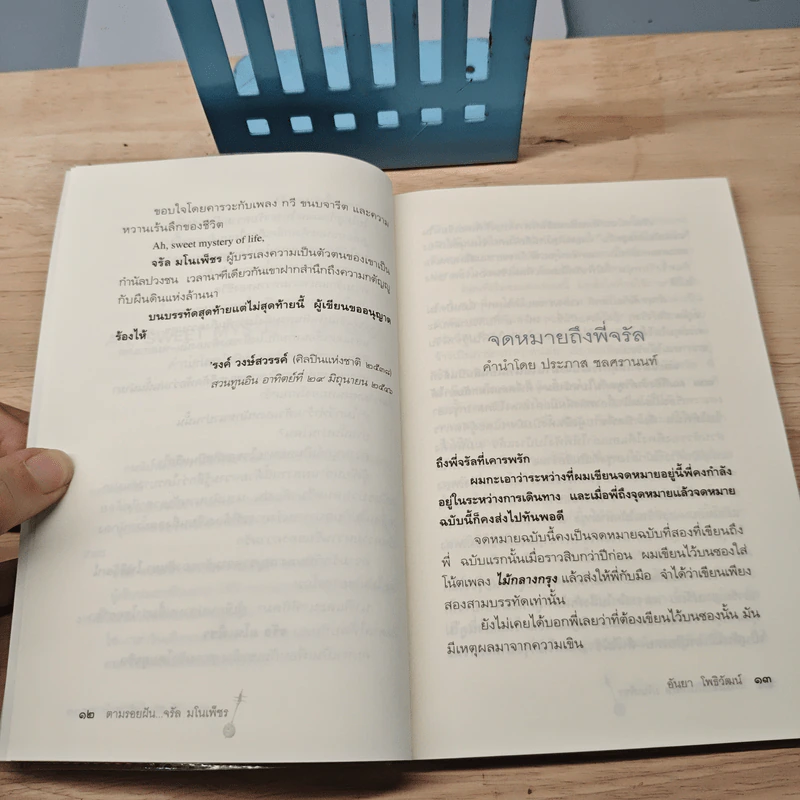 ขอบใจโดยคารวะกับเพลง กวี ขนบจารีต และความ
หวานเร้นลึกของชีวิต
Ah, sweet mystery of life,
จรัล มโนเพ็ชร ผู้บรรเลงความเป็นตัวตนของเขาเป็น
กำนัลปวงชน เวลานาฑีเดียวกันเขาฝากสำนึกถึงความกตัญญู
กับผืนดินแห่งล้านนา
บนบรรทัดสุดท้ายแต่ไม่สุดท้ายนี้ ผู้เขียนขออนุญาต
ร้องไห้
'รงค์ วงษ์สวรรค์ (ศิลปินแห่งชาติ ๒๕๓๘)
สวนทูนอิน อาทิตย์ที่ ๒๙ มิถุนายน ๒๕๔๖
๑๒ ตามรอยฝัน...จรัล มโนเพ็ชร
จดหมายถึงพี่จรัล
คำนำโดย ประภาส ชลศรานนท์
ถึงพี่จรัลที่เคารพรัก
ผมกะเอาว่าระหว่างที่ผมเขียนจดหมายอยู่นี้พี่คงกำลัง
อยู่ในระหว่างการเดินทาง และเมื่อพี่ถึงจุดหมายแล้วจดหมาย
ฉบับนี้ก็คงส่งไปทันพอดี
จดหมายฉบับนี้คงเป็นจดหมายฉบับที่สองที่เขียนถึง
พี่ ฉบับแรกนั้นเมื่อราวสิบกว่าปีก่อน ผมเขียนไว้บนซองใส่
โน้ตเพลง ไม้กลางกรุง แล้วส่งให้พี่กับมือ จำได้ว่าเขียนเพียง
สองสามบรรทัดเท่านั้น
ยังไม่เคยได้บอกพี่เลยว่าที่ต้องเขียนไว้บนซองนั้น มัน
มีเหตุผลมาจากความเขิน
อันยา โพธิวัฒน์ ๑๓